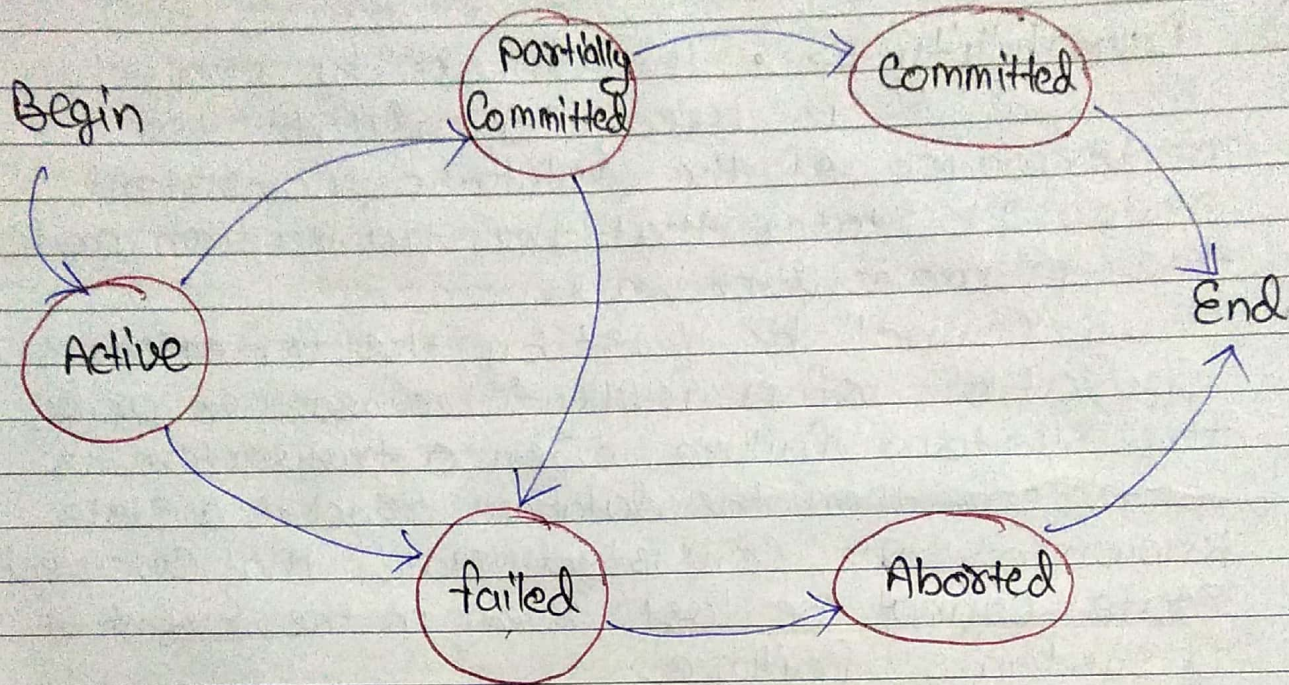 Begin
Partially
Committed
Committed
Active
End
failed
Aborted